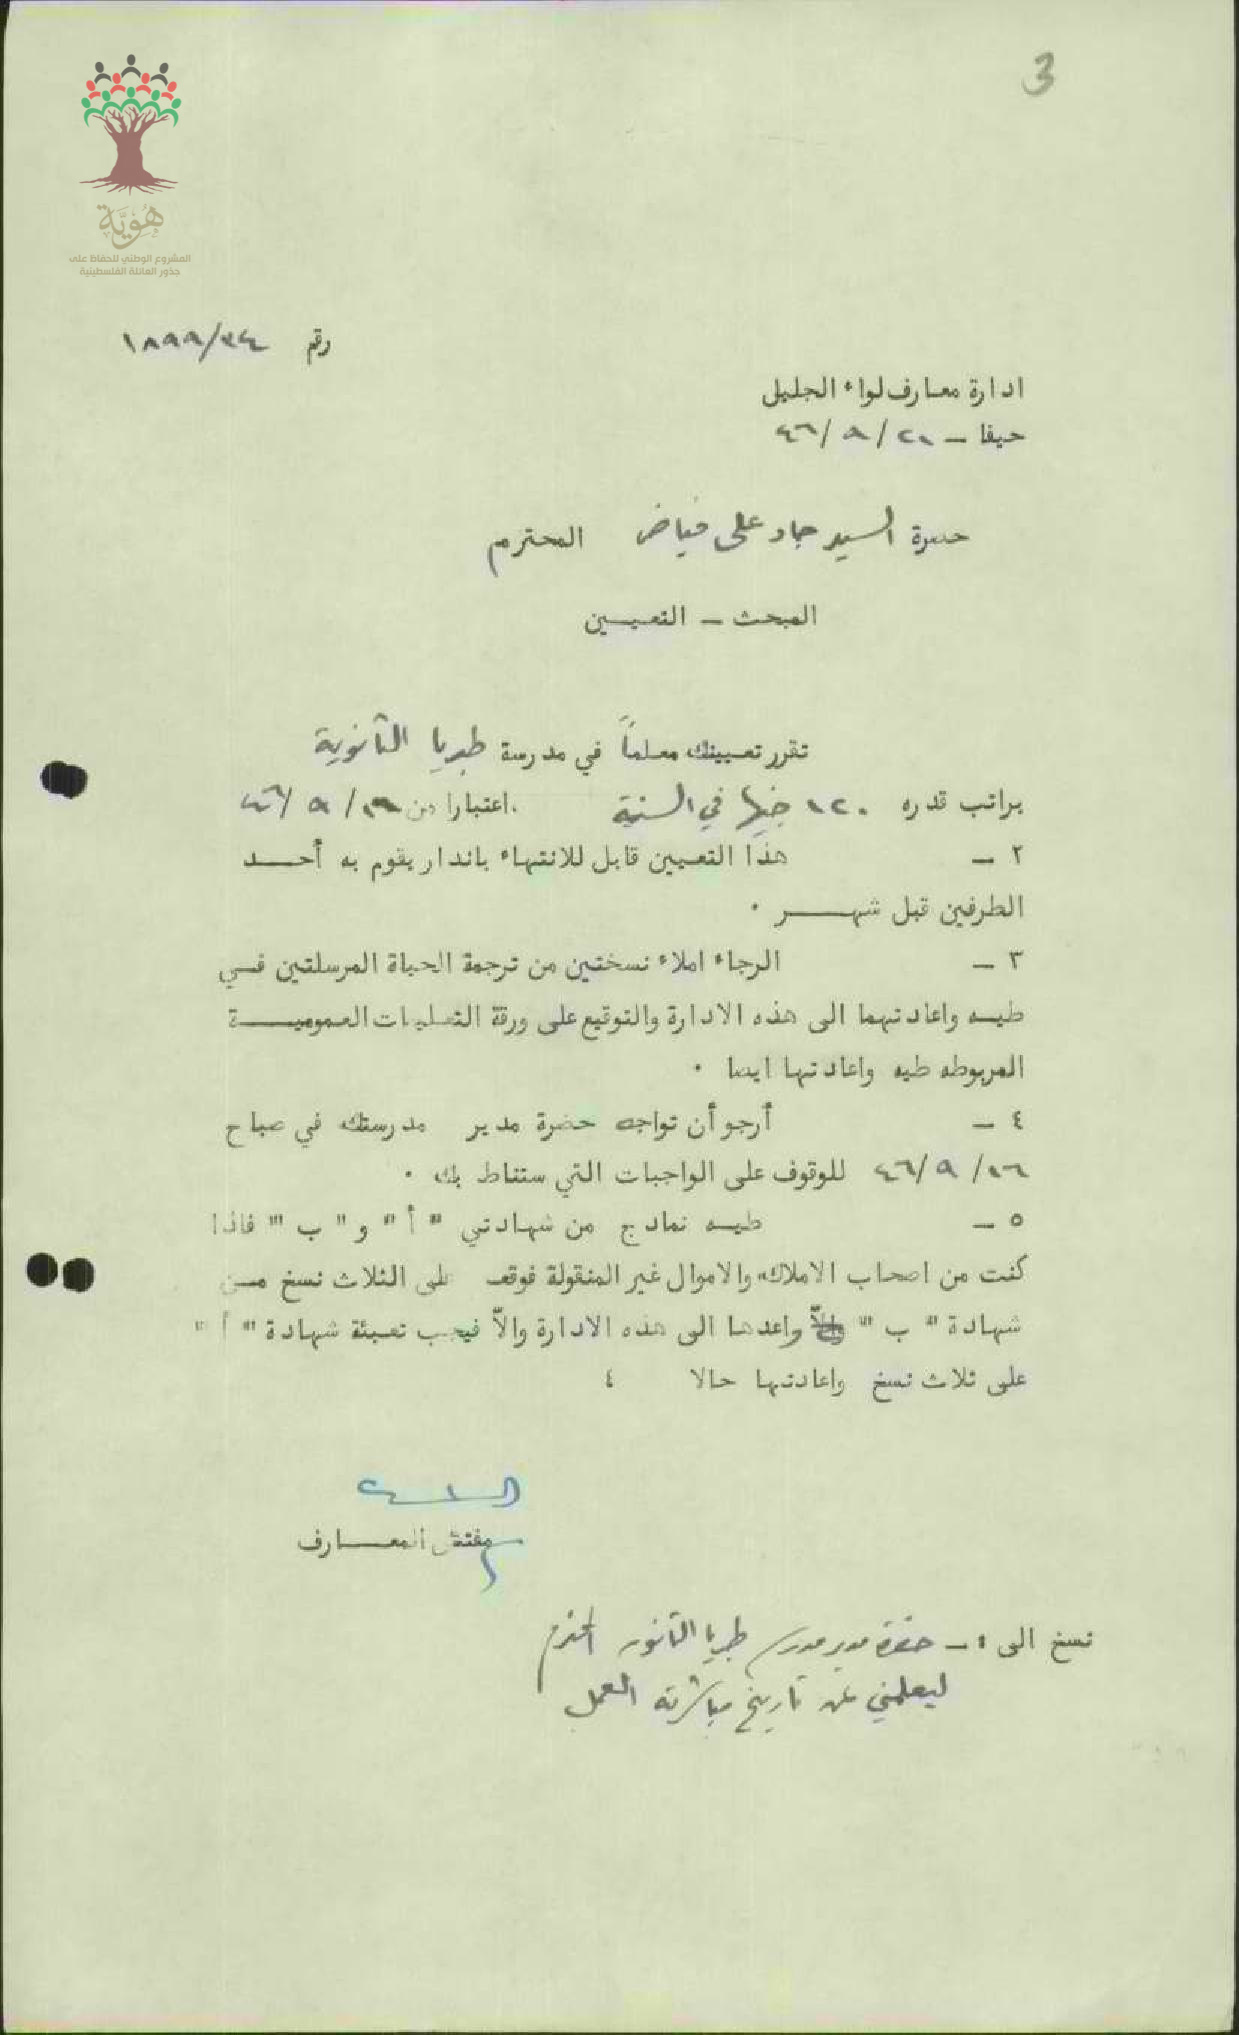 3
هُوِيَّة
المشروع الوطني للحفاظ على
جذور العائلة الفلسطينية
رقم ١٨٩٩/٣٤
ادارة معارف لواء الجليل
حيفا – ٢١ / ٩ / ٤٦
حضرة السيد جاد على فياض المحترم
المبحث – التعيـــين
تقرر تعيينك معلماً في مدرسة طبريا الثانوية
براتب قدره ١٢٠ جنيها في السنة اعتبارا من ١٦ / ٩ / ٤٦
٢ – هذا التعيين قابل للانتهاء باندار يقوم به أحـــد
الطرفين قبل شهـــر .
٣ – الرجاء املاء نسختين من ترجمة الحياة المرسلتين فــي
طيــه واعادتهما الى هذه الادارة والتوقيع على ورقة التعليمات العموميـــة
المربوطه طيه واعادتها ايضا .
٤ – أرجو أن تواجه حضرة مدير مدرستك في صباح
١٦ / ٩ / ٤٦ للوقوف على الواجبات التي ستناط بك .
٥ – طيــه نمادج من شهادتي " أ " و " ب " فاذا
كنت من اصحاب الاملاك والاموال غير المنقولة فوقع على الثلاث نسخ مــن
شهادة " ب " واعدها الى هذه الادارة والاّ فيجب تعبئة شهادة " أ "
على ثلاث نسخ واعادتها حالا ٤
مفتش المعـــارف
نسخ الى :– حضرة مدير مدرسة طبريا الثانوية المحترم
ليعلمني عن تاريخ مباشرته العمل